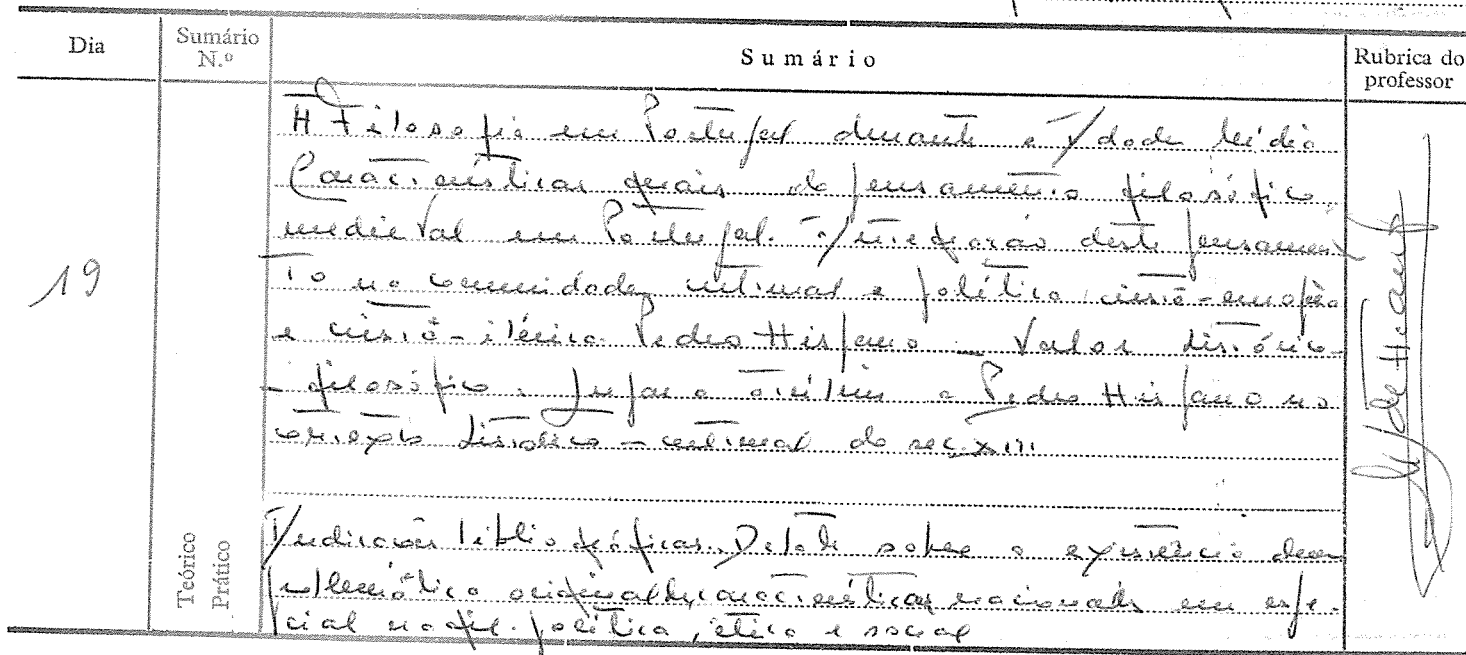 Dia
Sumário N.º
Sumário
Rubrica do professor
A Filosofia em Portugal durante a Idade Média
Características gerais do pensamento filosófico
medieval em Portugal. Integração deste pensamen
to na comunidade cultural e política cristã-europeia
e cristã-ibérica. Pedro Hispano _ Valor histórico-
-filosófico. Lugar a atribuir a Pedro Hispano no
contexto histórico-cultural do sec. XIII
19
Teórico
Prático
Indicações bibliográficas. Debate sobre a existência duma
problemática original de características nacionais em espe
cial na fil. política, ética e social